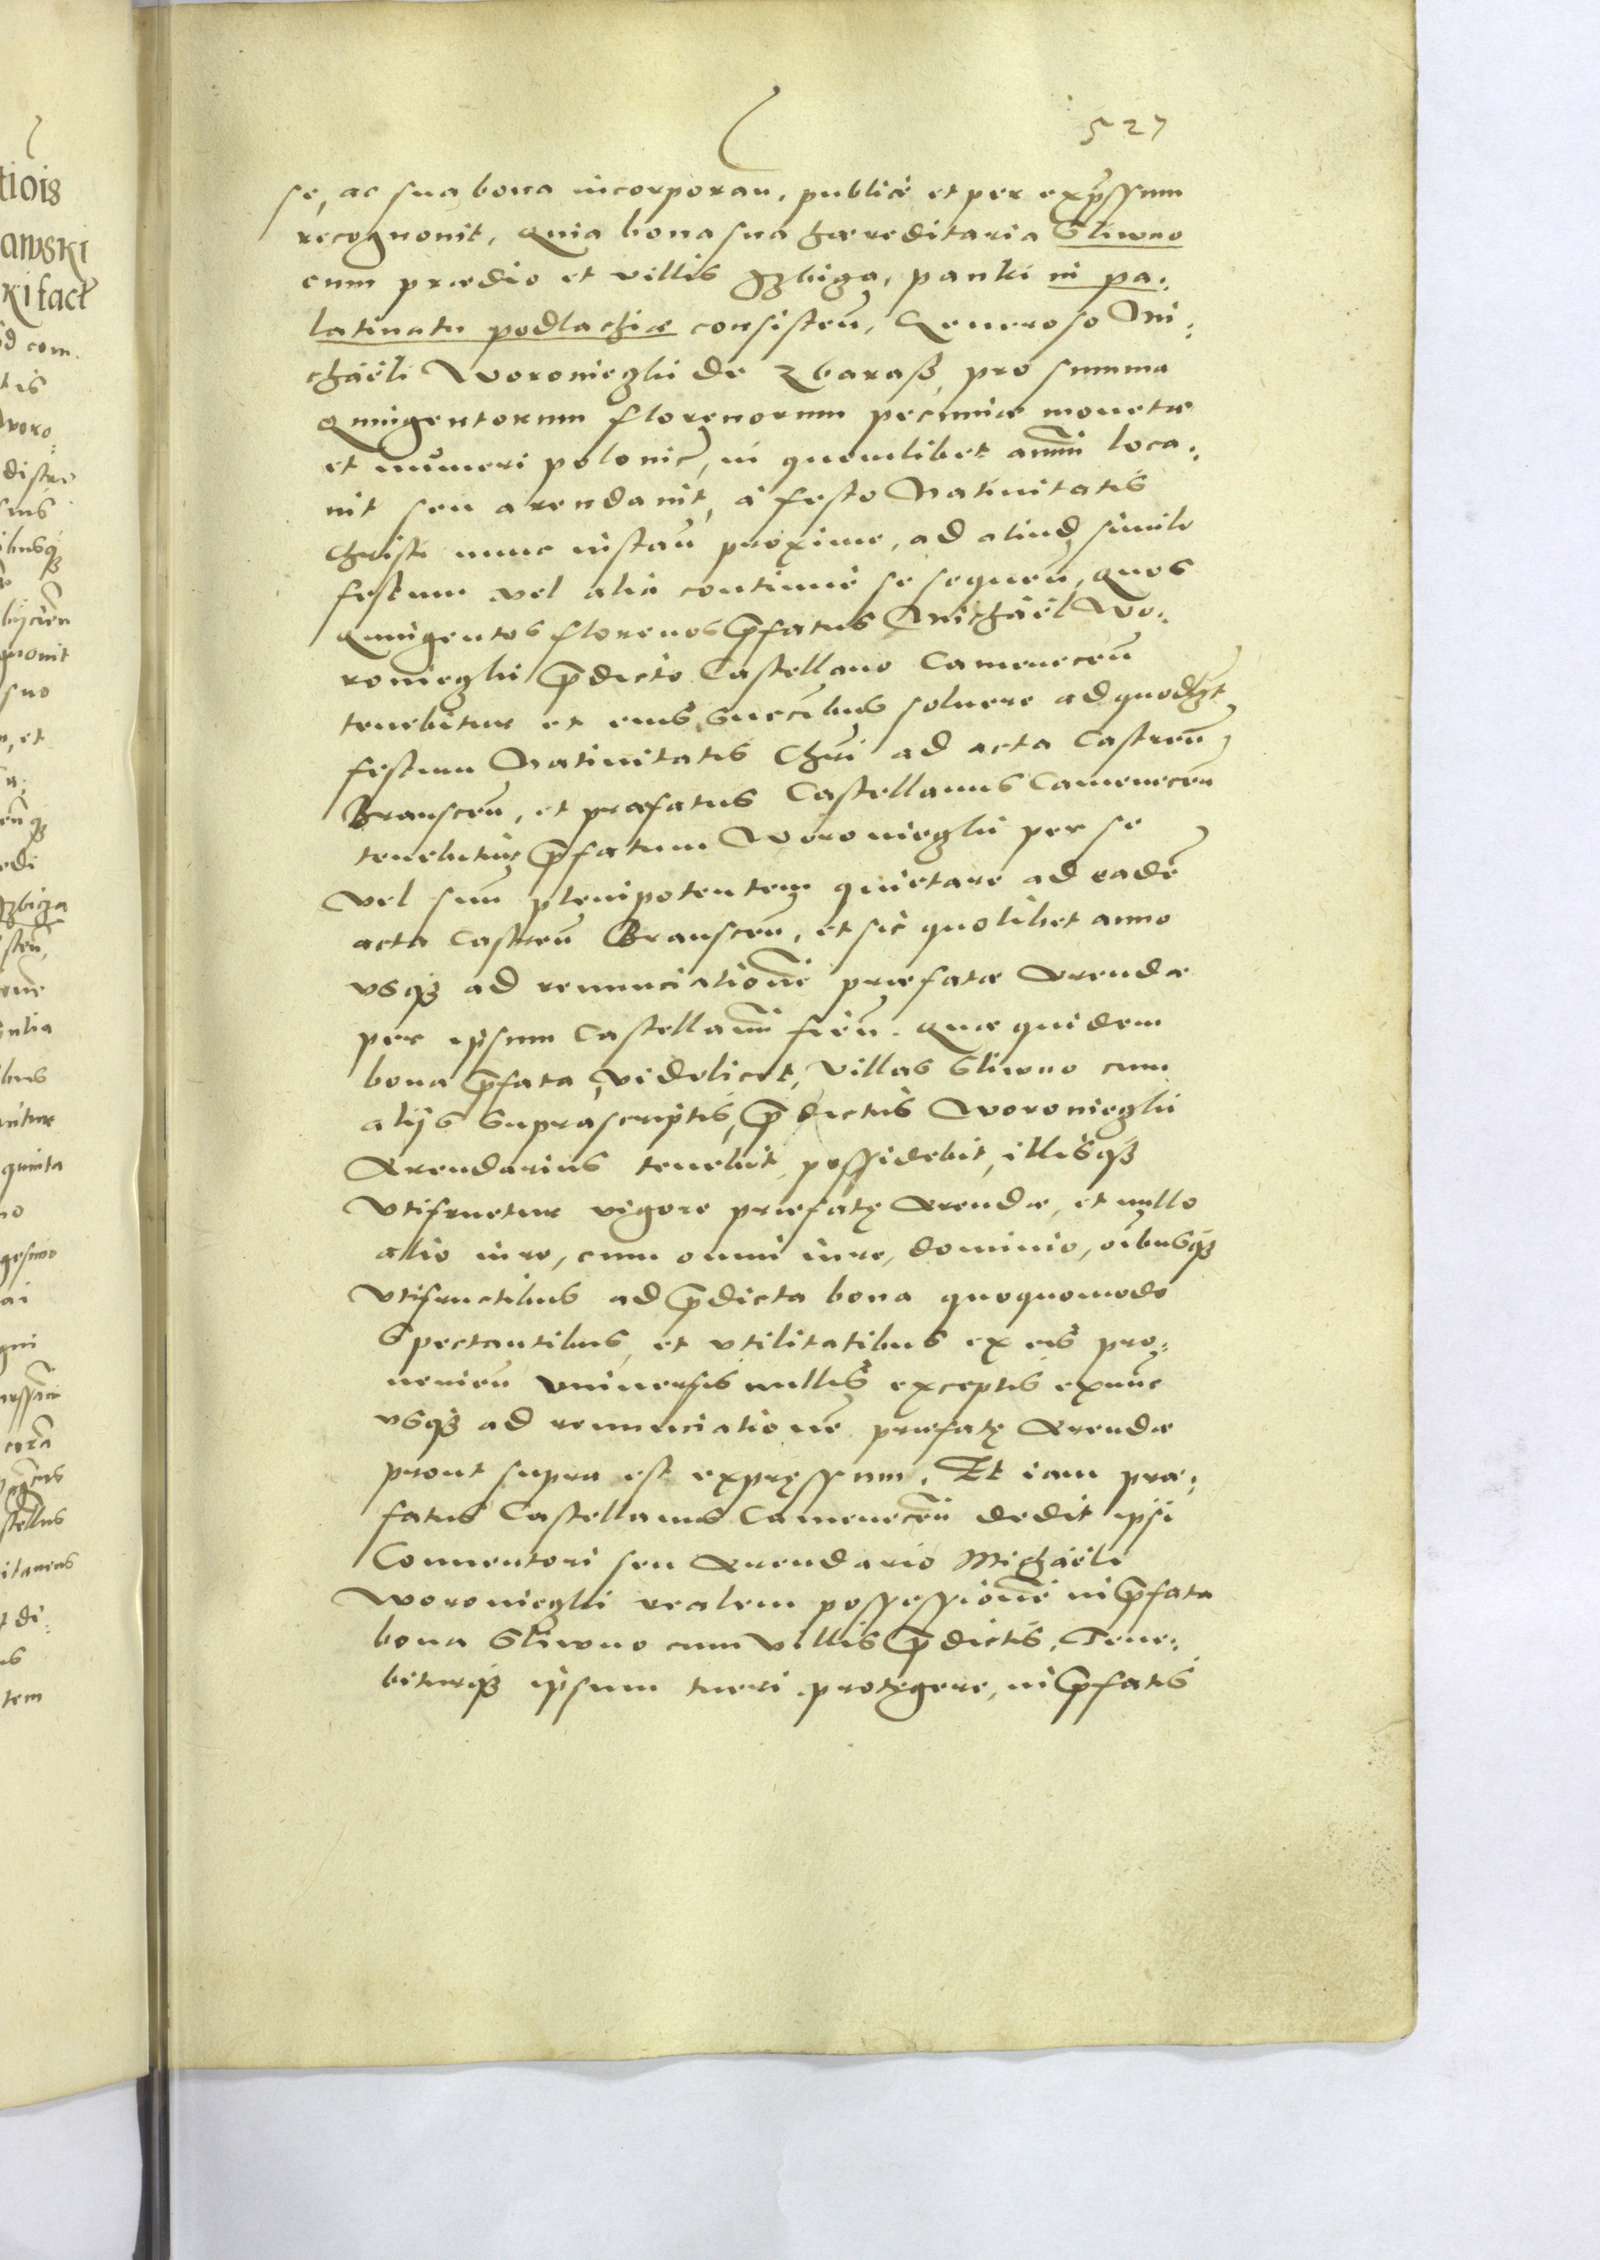 527
se, ac sua bona incorporan̄, publicè et per exp̄ssum
recognouit, Quia bona sua hæreditaria Sliwno
cum prædio et villis Gzbiga, panki in pa:
latinatu podlachiæ consisten̄, Generoso Mi:
chaëli Woronieghi de Zbaraß, pro summa
Quingentorum florenorum pecuniæ monetæ
et numeri polonic̄, in quemlibet annū loca:
uit seu arendauit, à festo Natiuitatis
Christi nunc instan̄ proxime, ad aliud simile
festum vel alia continuè se sequen̄, Quos
Quingentos florenos p̄fatus Michaël Wo:
ronieghi p̄dicto Castellano Camenecen̄
tenebitur et eius succ̄ibus soluere ad quodl̄t
festum Natiuitatis Chr̄i ad acta Castren̄
Branscen̄, et præfatus Castellanus Camenecen̄
tenebitur p̄fatum Woronieghi per se
vel suū plenipotentem quietare ad eadē
acta Castren̄ Branscen̄, et sic quolibet anno
vsq3 ad renunciationē præfatæ Arendæ
per ipsum Castellanū fien̄. Quæ quidem
bona p̄fata, videlicet, villas Sliwno cum
alijs suprascriptis, p̄dictus Woronieghi
Arendarius tenebit, possidebit, illisq3
vtifruetur vigore præfatę Arendæ, et nullo
alio iure, cum omni iure, dominio, oībusq3
vtifructibus ad p̄dicta bona quoquomodo
spectantibus, et vtilitatibus ex eis pro:
uenien̄ vniuersis nullis exceptis exnūc
vsq3 ad renunciationē præfatę Arendæ
prout supra est expręssum. Et iam præ:
fatus Castellanus Camenecen̄ dedit ipsi
Conuentori seu Arendario Michaëli
Woronieghi realem possessionē in p̄fata
bona Sliwno cum villis p̄dictis. Tene:
biturq3 ipsum tueri protęgere, in p̄fatis